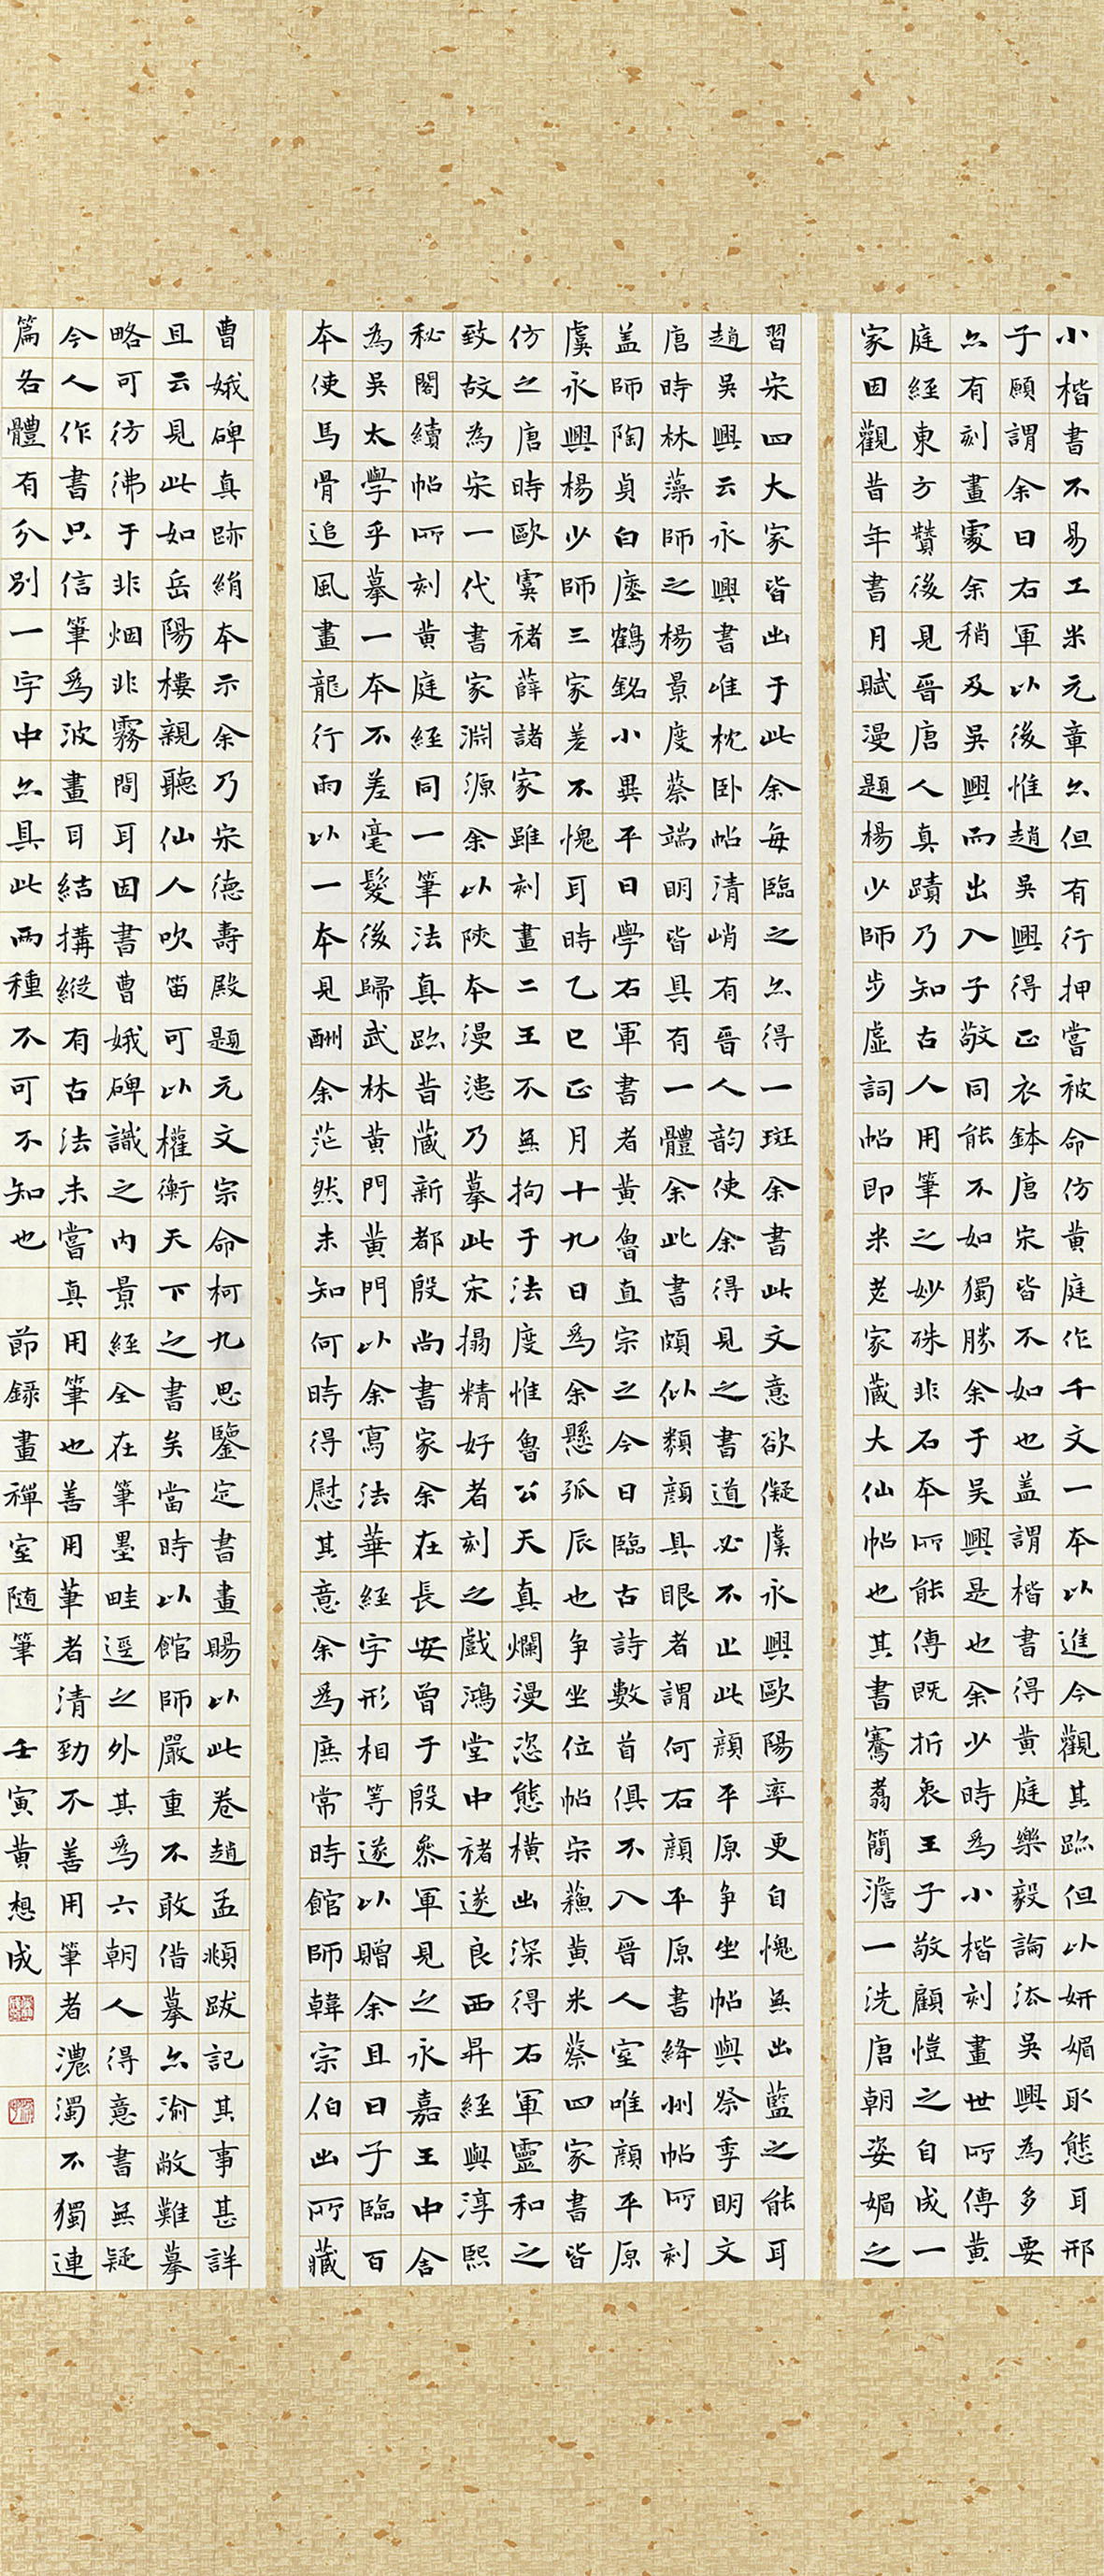 小楷書不易工米元章亦但有行押嘗被命仿黃庭作千文一本以進今觀其跡但以妍媚取態耳邢
子願謂余曰右軍以後惟趙吳興得正衣鉢唐宋皆不如也蓋謂楷書得黃庭樂毅論法吳興為多要
亦有刻畫處余稍及吳興而出入子敬同能不如獨勝余于吳興是也余少時為小楷刻畫世所傳黃
庭經東方贊後見晉唐人真蹟乃知古人用筆之妙殊非石本所能傳既折衷王子敬顧愷之自成一
家因觀昔年書月賦漫題楊少師步虛詞帖即米老家藏大仙帖也其書騫翥簡澹一洗唐朝姿媚之
習宋四大家皆出于此余每臨之亦得一斑余書此文意欲儗虞永興歐陽率更自愧無出藍之能耳
趙吳興云永興書唯枕卧帖清峭有晉人韵使余得見之書道必不止此顏平原爭坐帖與祭季明文
唐時林藻師之楊景度蔡端明皆具有一體余此書頗似類顏具眼者謂何右顏平原書絳州帖所刻
蓋師陶貞白瘞鶴銘小異平日學右軍書者黃魯直宗之今日臨古詩數首俱不入晉人室唯顏平原
虞永興楊少師三家差不愧耳時乙巳正月十九日為余懸弧辰也爭坐位帖宋蘇黃米蔡四家書皆
仿之唐時歐虞褚薛諸家雖刻畫二王不無拘于法度惟魯公天真爛漫恣態橫出深得右軍靈和之
致故為宋一代書家淵源余以陝本漫漶乃摹此宋搨精好者刻之戲鴻堂中褚遂良西昇經與淳熙
秘閣續帖所刻黃庭經同一筆法真跡昔藏新都殷尚書家余在長安曾于殷參軍見之永嘉王中舍
為吳太學乎摹一本不差毫髮後歸武林黃門黃門以余寫法華經字形相等遂以贈余且曰子臨百
本使馬骨追風畫龍行雨以一本見酬余茫然未知何時得慰其意余為庶常時館師韓宗伯出所藏
曹娥碑真跡絹本示余乃宋德壽殿題元文宗命柯九思鑒定書畫賜以此卷趙孟頫跋記其事甚詳
且云見此如岳陽樓親聽仙人吹笛可以權衡天下之書矣當時以館師嚴重不敢借摹亦渝敝難摹
略可彷彿于非烟非霧間耳因書曹娥碑識之內景經全在筆墨畦逕之外其為六朝人得意書無疑
今人作書只信筆為波畫耳結搆縱有古法未嘗真用筆也善用筆者清勁不善用筆者濃濁不獨連
篇各體有分別一字中亦具此兩種不可不知也 節錄畫禪室随筆 壬寅黃想成